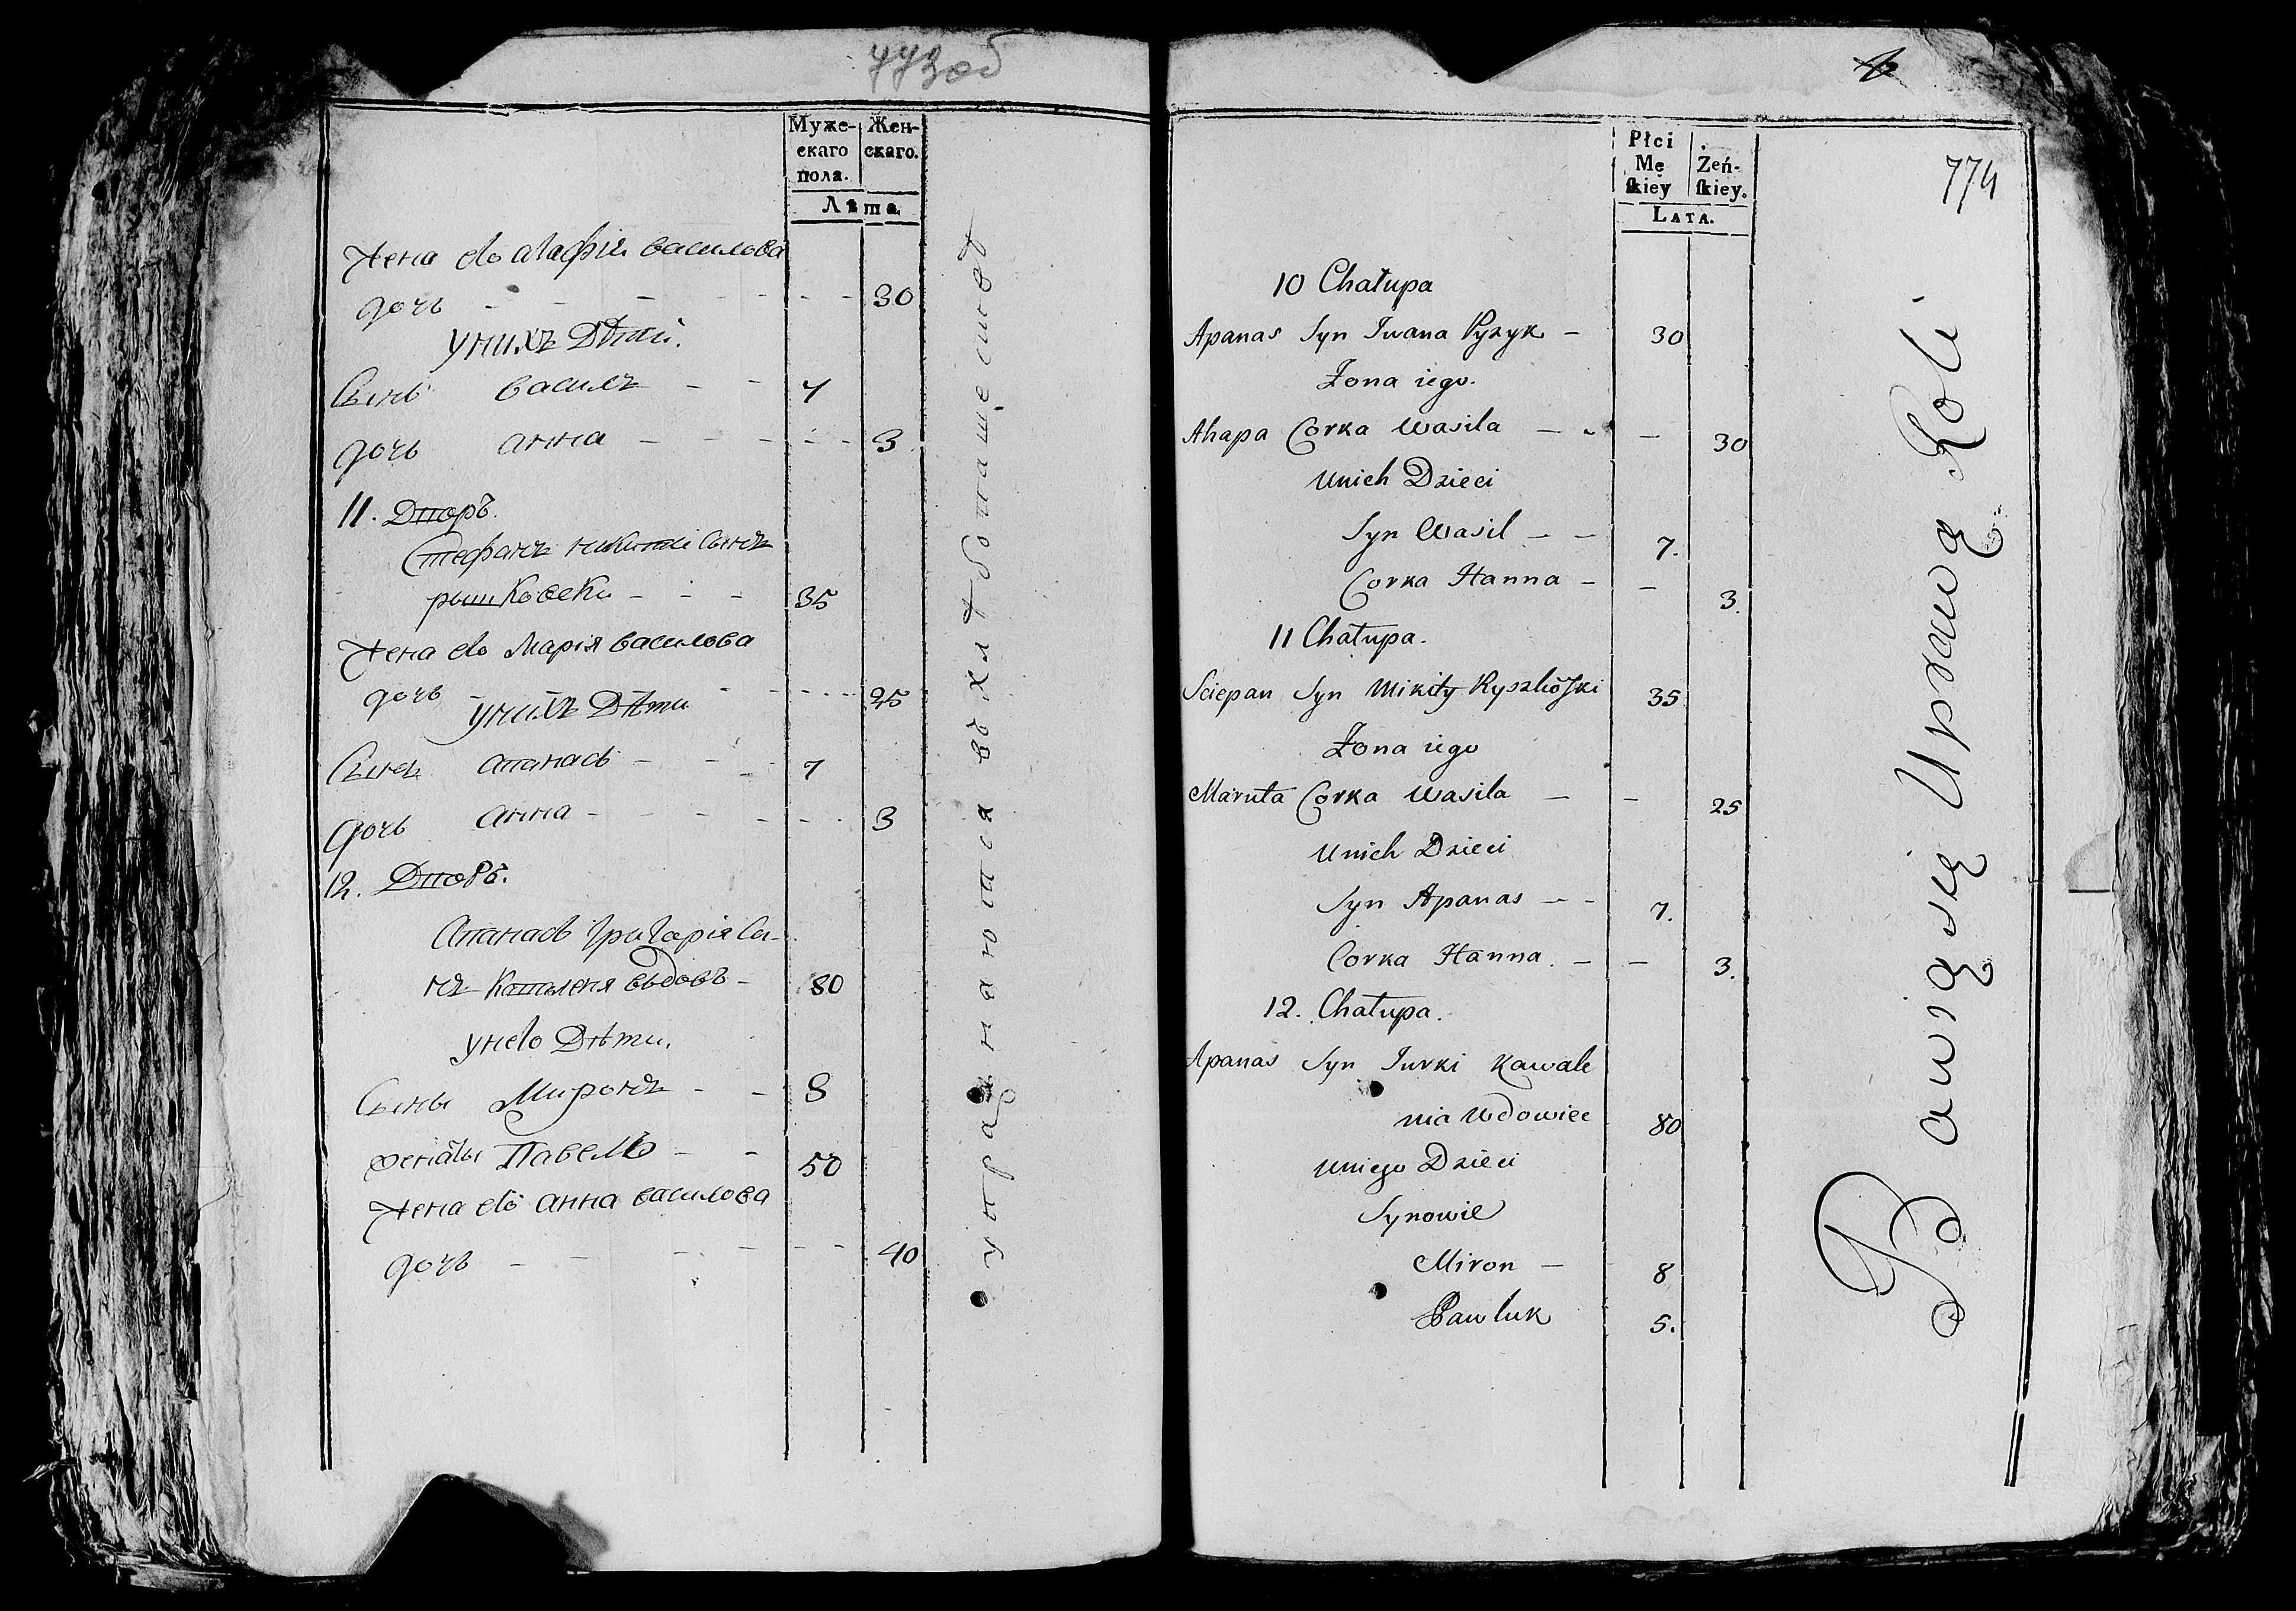 773об
Муже-
скаго
пола.
Жен-
скаго.
Лѣта
Жена его Агафіи василова
дочь - - - - 30
У нихъ Дѣти.
Сынъ василъ - - 7
дочь анна - - - 3
11. Дворъ.
Стефанъ никити Сынъ
рышковски - - - 35
Жена его Марія василова
дочь - - - 25
У нихъ Дѣти
Сынъ апанасъ - - 7
дочь анна - - - 3
12. Дворъ.
Апанасъ григорія Сы-
нъ Коваленя вдовъ - 80
у него Дѣти.
Сыны Миронъ - - 8
женаты Павелъ - - 50
Жена его анна василова
дочь - - - 40
упражняются въ хлѣбопашествѣ
774
Płci
Mę
skiey
Żeń-
skiey.
Lata.
10 Chałupa
Apanas Syn Iwana Pyzyk - 30
Żona iego.
Ahapa Corka Wasila - - 30
Unich Dzieci
Syn Wasil - - 7.
Corka Hanna - - 3.
11 Chałupa.
Sciepan Syn Mikity Ryszkoski 35
Żona iego
Maruta Corka Wasila - - 25
Unich Dzieci
Syn Apanas - - 7.
Corka Hanna. - - 3.
12. Chałupa.
Apanas Syn Iurki Kawale
nia Wdowiec 80
Uniego Dzieci
Synowie
Miron - 8
Pawluk 5.
Bawiąsię Uprawą Roli